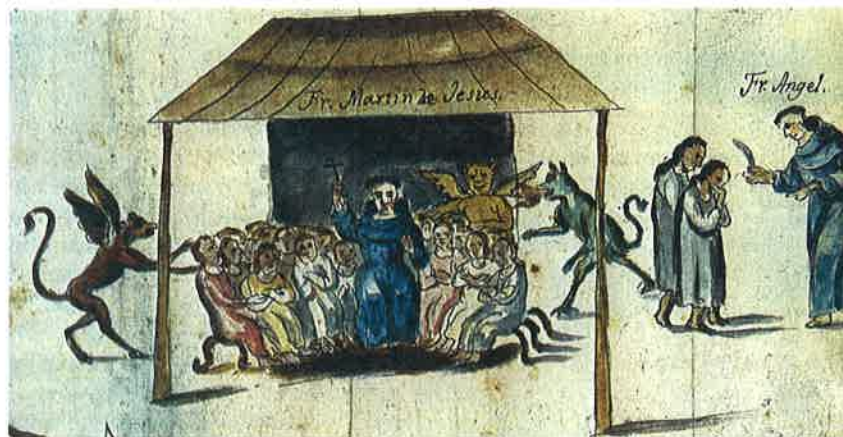 Fr. Martin de Jesús.
Fr. Angel.